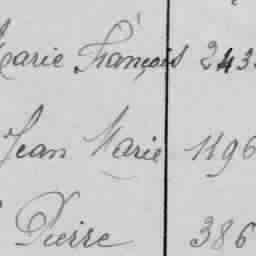 Marie François 243
Jean Marie 1196
Pierre 386